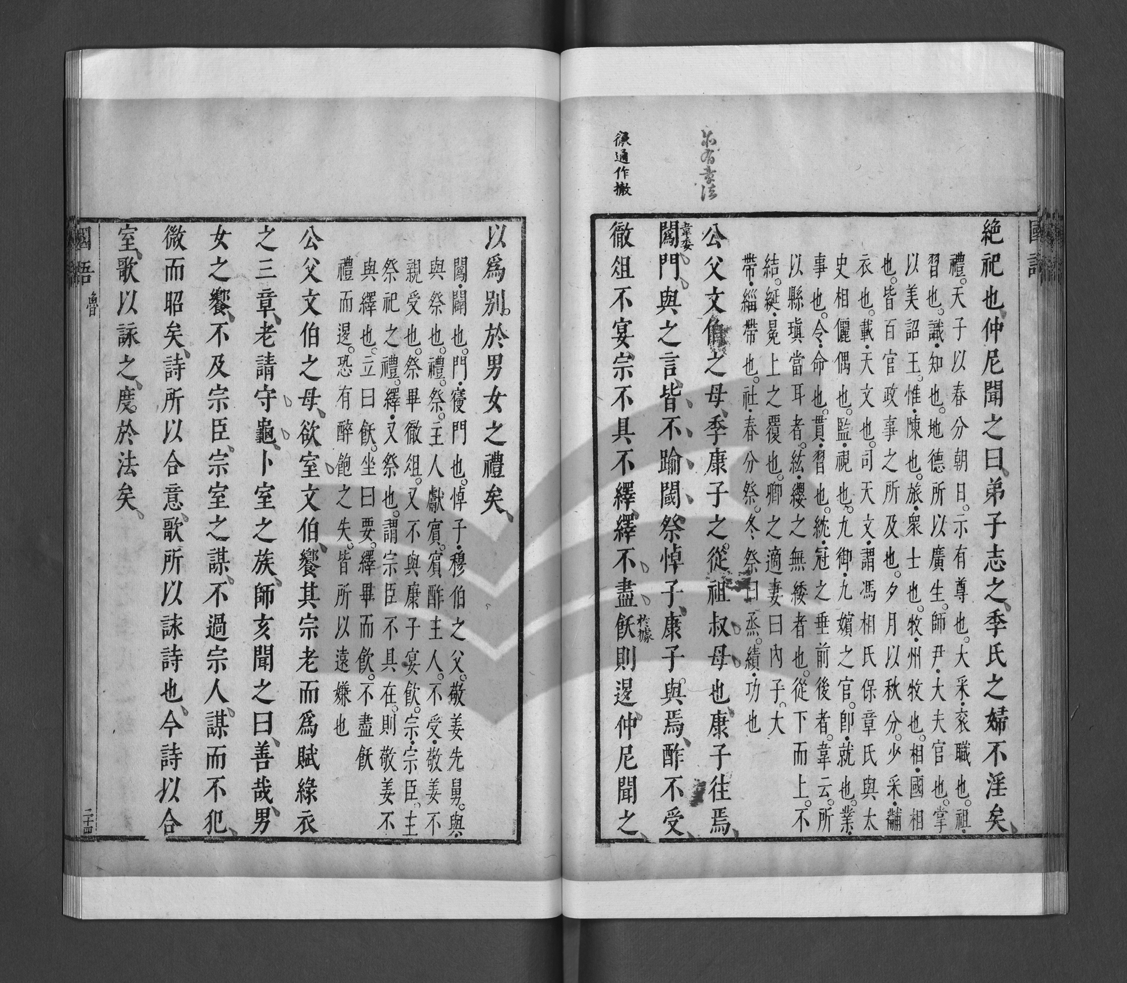 徹通作撤
絶祀也仲尼聞之曰弟子志之季氏之婦不淫矣
禮天子以春分朝日示有尊也大采袞職也祖
習也識知也地德所以廣生師尹大夫官也掌
以美詔王惟陳也旅衆士也牧州牧也相國相
也皆百官政事之所及也夕月以秋分少采黼
衣也載天文也司天文謂馮相氏保章氏與太
史相儷偶也監視也九御九嬪之官卽就也業
事也令命也貫習也紞冠之垂前後者韋云所
以縣瑱當耳者紘纓之無緌者也從下而上不
結綖冕上之覆也卿之適妻曰内子大
帶緇帶也社春分祭冬祭曰烝績功也
公父文伯之母季康子之從祖叔母也康子往焉
䦱門與之言皆不踰閾祭悼子康子與焉酢不受
韋委
徹俎不宴宗不具不繹繹不盡飫則退仲尼聞之
於據
國語
以爲別於男女之禮矣
䦱闢也門寢門也悼子穆伯之父敬姜先舅與
與祭也禮祭主人獻賓賓酢主人不受敬姜不
親受也祭畢徹俎又不與康子宴飮宗宗臣主
祭祀之禮繹又祭也謂宗臣不具在則敬姜不
與繹也立曰飫坐曰宴繹畢而飮不盡飫
禮而退恐有醉飽之失皆所以遠嫌也
公父文伯之母欲室文伯饗其宗老而爲賦綠衣
之三章老請守龜卜室之族師亥聞之曰善哉男
女之饗不及宗臣宗室之謀不過宗人謀而不犯
微而昭矣詩所以合意歌所以詠詩也今詩以合
室歌以詠之度於法矣
國語
魯
二十四